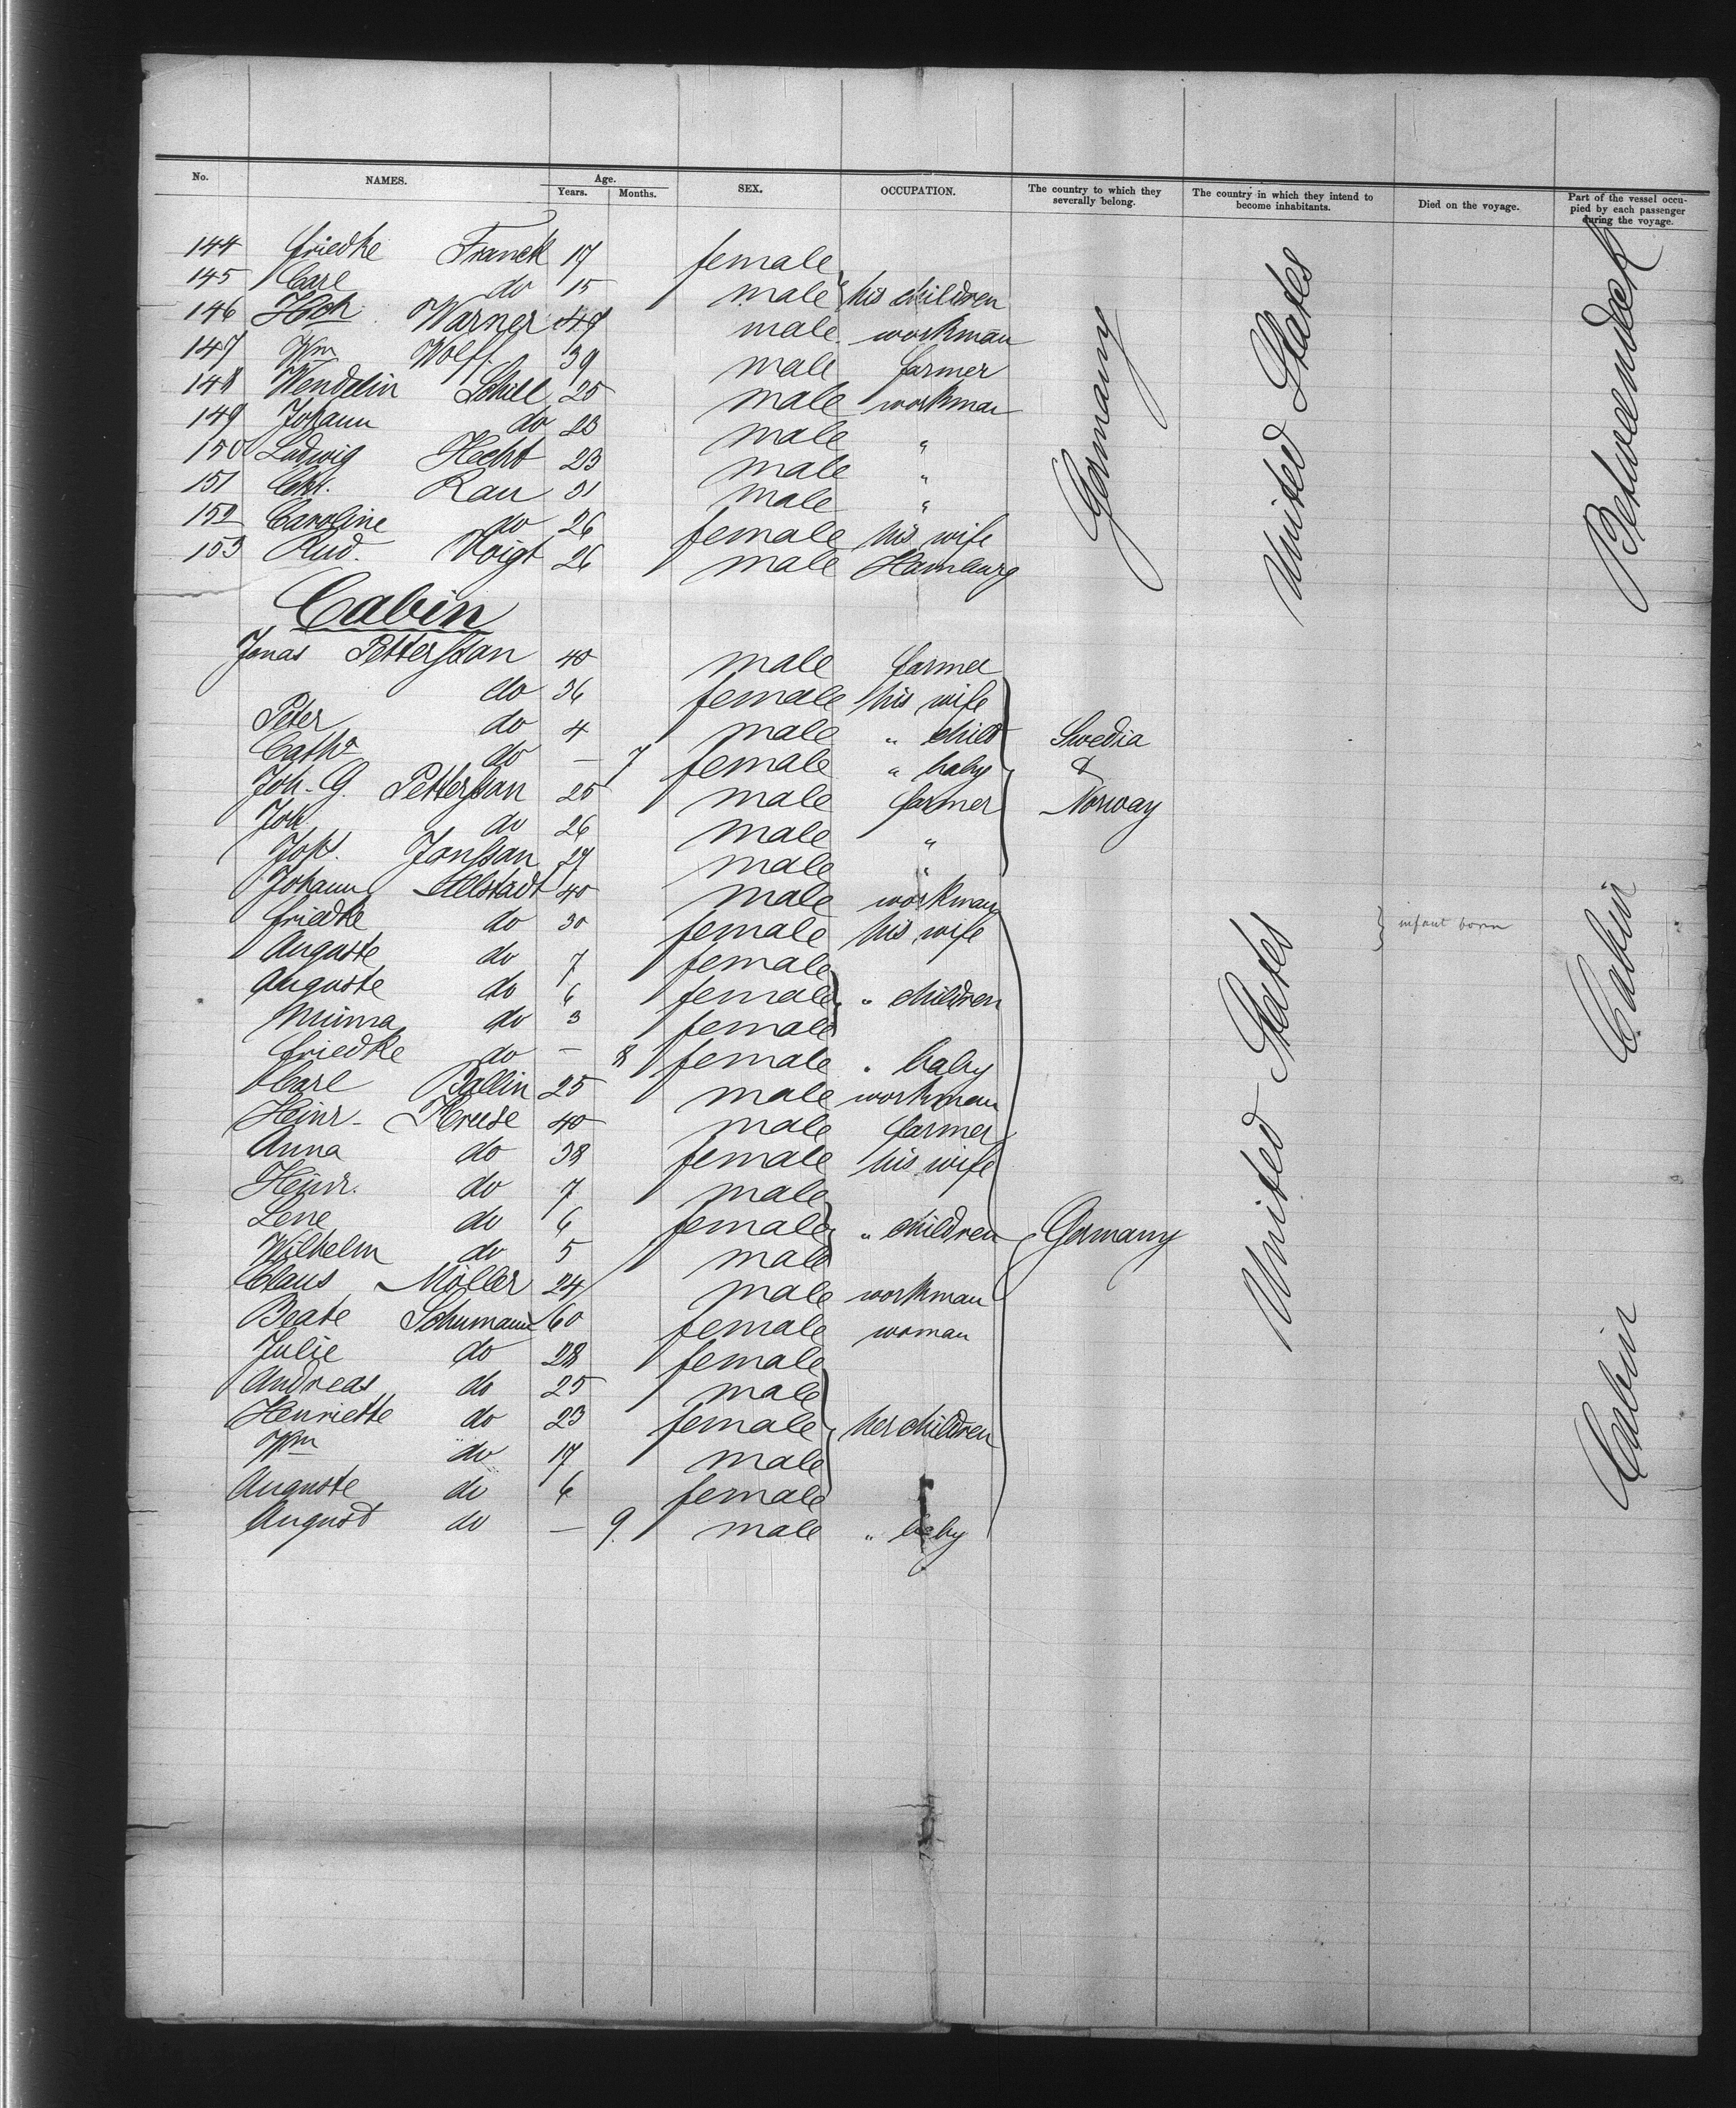 No. NAMES. Age. Years. Months. SEX. OCCUPATION. The country to which they severally belong. The country in which they intend to become inhabitants. Died on the voyage. Part of the vessel occupied by each passenger during the voyage.
144 Friedke Franck 17 female
145 Carl do 15 male } his children
146 Hch Warner 49 male workman
147 Wm Wolff 39 male farmer
148 Wendelin Schill 25 male workman
149 Johann do 23 male "
150 Ludwig Hecht 23 male "
151 Chr. Rau 31 male "
152 Caroline do 26 female his wife
153 Rud. Voigt 26 male Hamburg
Germany
United States
Betweendeck
Cabin
Jonas Petterssan 40 male farmer
do 36 female his wife
Peter do 4 male " child
Catha do — 7 female " baby
Joh. G. Petterssan 25 male farmer
Joh. do 26 male "
Joh. Jonssan 27 male "
Swedia
&
Norway
Johann Allstadt 40 male workman
Friedke do 30 female his wife
} infant born
Auguste do 7 female
Auguste do 6 female } " children
Minna do 3 female
Friedke do — 8 female " baby
Carl Ballin 25 male workman
Heinr. Kruse 40 male farmer
Anna do 38 female his wife
Heinr. do 7 male
Lene do 6 female } " children
Wilhelm do 5 male
Claus Möller 24 male workman
Beate Schumann 60 female woman
Julie do 28 female
Andreas do 25 male
Henriette do 23 female } her children
Wm do 17 male
Auguste do 6 female
August do — 9 male " baby
Germany
United States
Cabin
Cabin